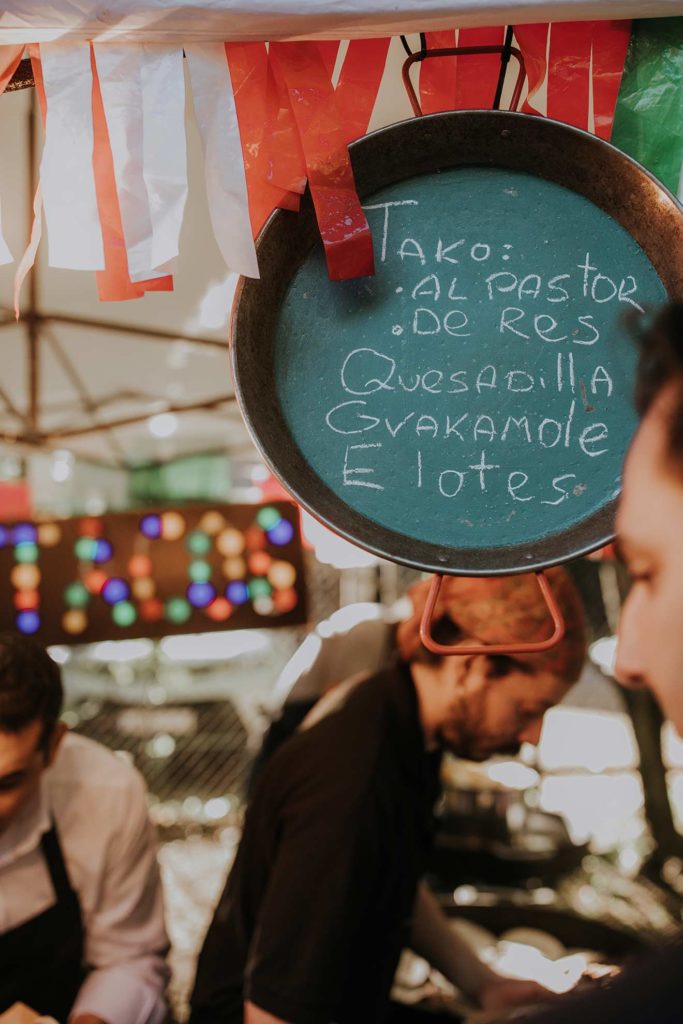 TAKO:
• AL PASTOR
• DE RES
QUESADILLA
GVAKAMOLE
ELOTES